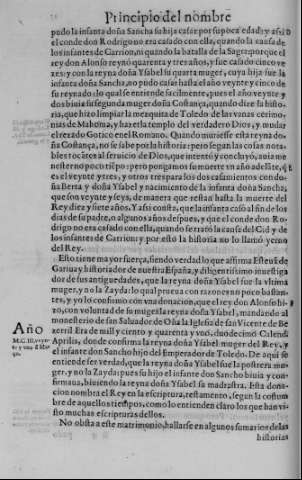 Principio del nombre
pudo la infanta doña Sancha su hija casar por su poca edad: y assi
el conde don Rodrigo no era casado con ella, quando la causa de
los infantes de Carrion, ni quando la batalla de la Sagra: porque el
rey don Alonso reynó quarenta y tres años, y fue casado cinco ve
zes: y con la reyna doña Ysabel su quarta muger, cuya hija fue la
infanta doña Sancha, no pudo casar hasta el año veynte y cinco de
su reynado: lo qual se entiende facilmente, pues el año veynte y
dos biuia su segunda muger doña Costança, quando dize la histo-
ria, que hizo limpiar la mezquita de Toledo de las vanas cerimo-
nias de Mahoma, y hazerla templo del verdadero Dios, y mudar
el rezado Gotico en el Romano. Quando muriesse esta reyna do-
ña Costança, no se sabe por la historia: pero segun las cosas nota-
bles tocãte al seruicio de Dios, que intentó y concluyó, auia me
nester no poco tiẽpo: pero pongamos su muerte vn año adelãte,
es el veynte y tres, y otros tres para los dos casamientos con do-
ña Berta y doña Ysabel, y nacimiento de la infanta doña Sancha;
que son veynte y seys, de manera que restan hasta la muerte del
Rey diez y siete años. Y assi consta, que la infanta casó al fin de los
dias de su padre, o algunos años despues, y que el conde don Ro-
drigo no era casado con ella, quando se trató la causa del Cid y de
los infantes de Carrion: y por esto la historia no lo llamó yerno
del Rey.
Esto tiene mayor fuerça, siendo verdad lo que affirma Esteuã de
Gariuay historiador de nuestra España, y diligentissimo inuestiga
dor de sus antiguedades, que la reyna doña Ysabel fue la vltima
muger, y no la Zayda: lo qual prueua con razones no poco bastan-
tes, y yo lo confirmo con vna donacion, que el rey don Alonso hi-
zo, con voluntad de su muger la reyna doña Ysabel, mandando al
monesterio de san Saluador de Oña la Iglesia de san Vicente de Be
zerril Era de mil y ciento y quarenta y vno, duodecimo Calendi
Aprilis, donde confirma la reyna doña Ysabel muger del Rey, y
el infante don Sancho hijo del Emperador de Toledo. De aqui se
entiende ser verdad, que la reyna doña Ysabel fue la postrera mu-
ger, y no la Zayda: pues su hijo el infante don Sancho biuia y con-
firmaua, biuiendo la reyna doña Ysabel su madrastra. Esta dona-
cion nombra el Rey en la escriptura, testamento, segun la costum
bre de aquellos tiempos, como lo entienden claro los que han vi-
sto muchas escripturas dellos.
No obsta a este matrimonio, hallarse en algunos sumarios de las
historias
Año